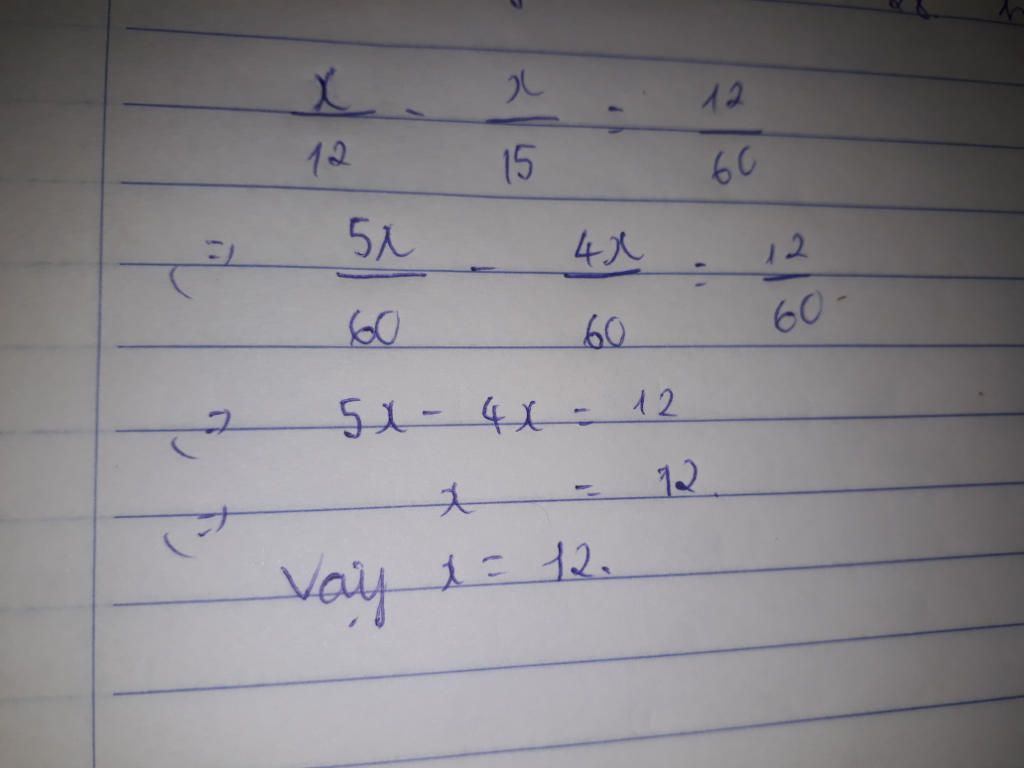 x/12 - x/15 = 12/60
(=) 5x/60 - 4x/60 = 12/60
(=) 5x - 4x = 12
(=) x = 12.
Vậy x = 12.